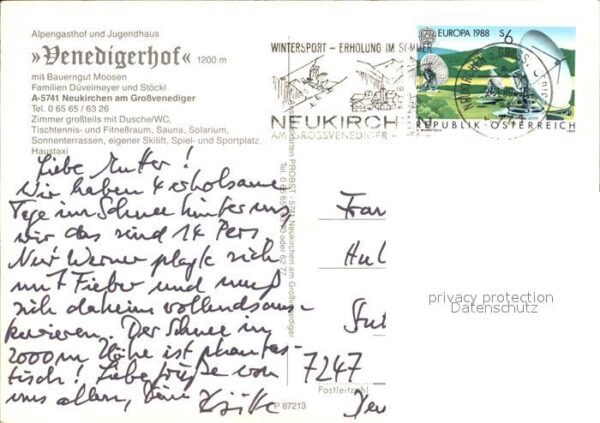 Alpengasthof und Jugendhaus
»Venedigerhof« 1200 m
mit Bauerngut Moosen
Familien Düvelmeyer und Stöckl
A-5741 Neukirchen am Großvenediger
Tel. 0 65 65 / 63 26
Zimmer großteils mit Dusche/WC,
Tischtennis- und Fitneßraum, Sauna, Solarium,
Sonnenterrassen, eigener Skilift, Spiel- und Sportplatz,
Haustaxi
WINTERSPORT - ERHOLUNG IM SOMMER
NEUKIRCHEN
AM GROSSVENEDIGER
EUROPA 1988 S 6
REPUBLIK ÖSTERREICH
Liebe Mutter!
Wir haben 4 erholsame
Tage im Schnee hinter uns
wir das sind 14 Pers.
Nur Werner plagt sich
mit Fieber und muß
sich daheim vollends aus-
kurieren. Der Schnee in
2000 m Höhe ist phantas-
tisch! Liebe Grüße von
uns allen, Deine
PROBST - 5741 Neukirchen am Großvenediger
Frau
Hul
Stut
7247
Postleitzahl
P 87213
privacy protection
Datenschutz